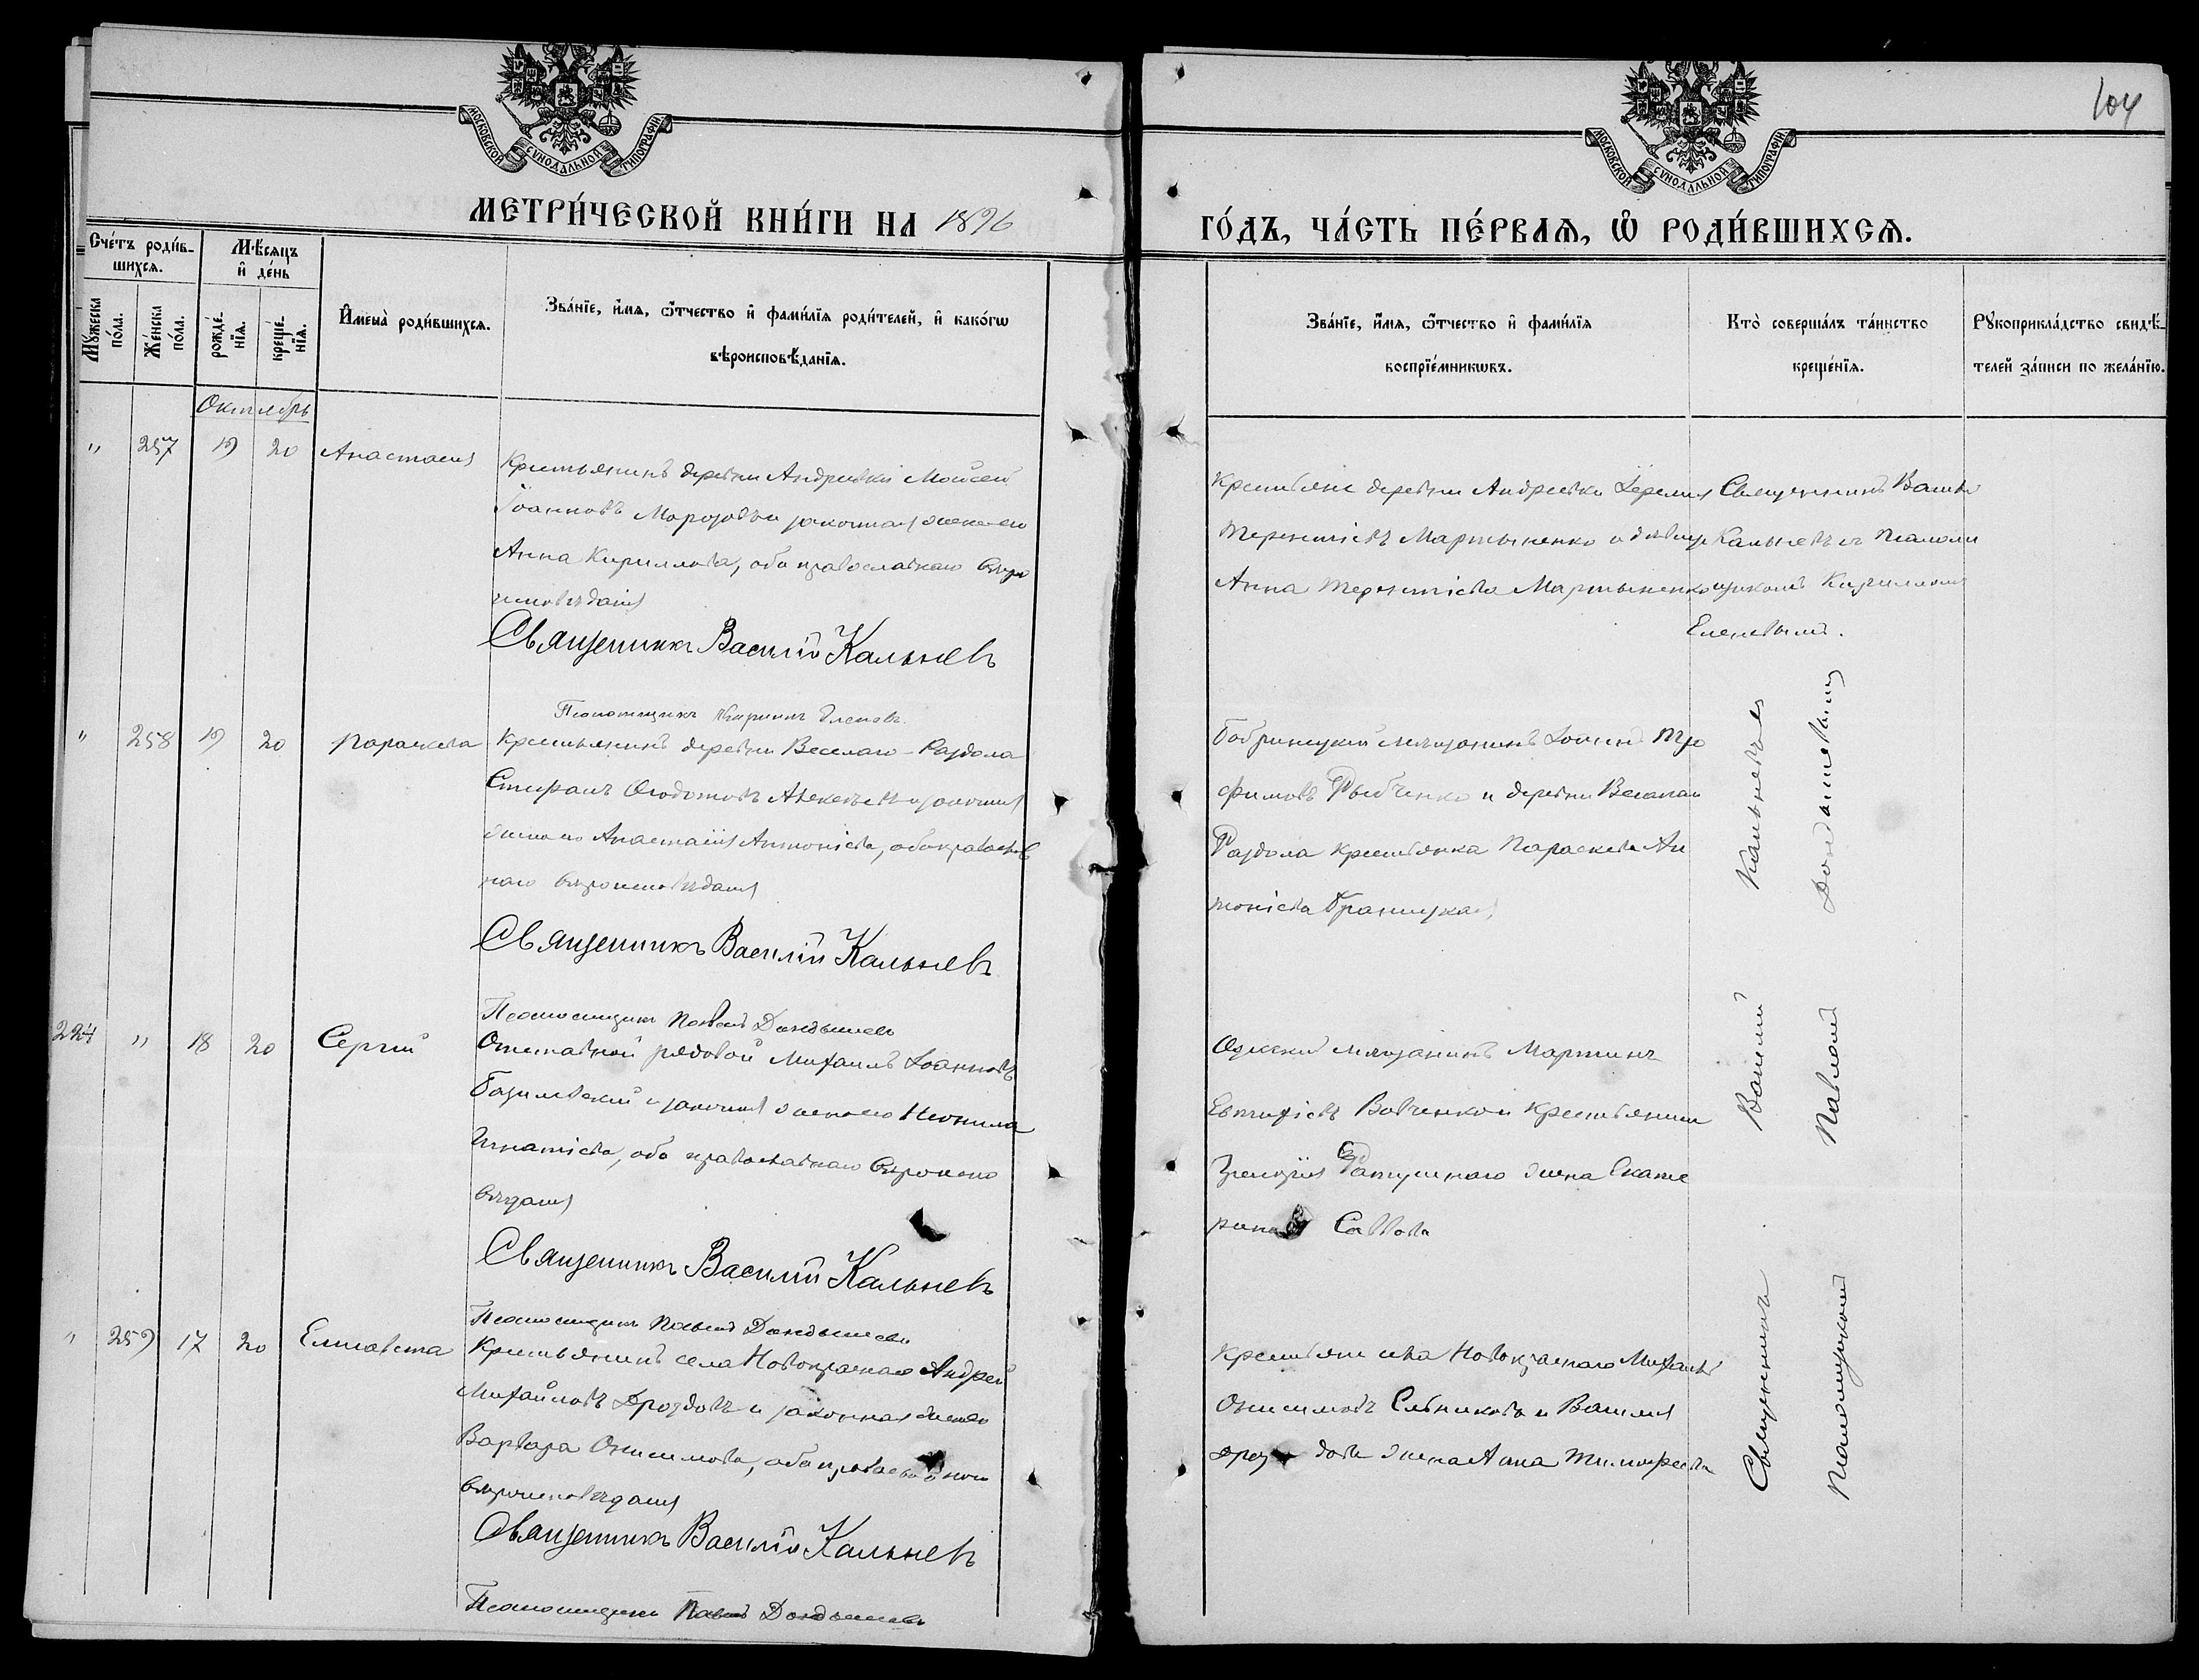 104
МОСКОВСКОЙ СѴНОДАЛЬНОЙ ТИПОГРАФІИ
МОСКОВСКОЙ СѴНОДАЛЬНОЙ ТИПОГРАФІИ
МЕТРИ́ЧЕСКОЙ КНИ́ГИ НА 1896
ГО́ДЪ, ЧА́СТЬ ПЕ́РВАѦ, Ѡ РОДИ́ВШИХСѦ.
Сче́тъ роди́в-
шихсѧ.
Мѣ́сѧцъ
и҆ де́нь
Мꙋ́жеска по́ла.
Же́нска по́ла.
рожде́-
нїѧ.
креще́-
нїѧ.
И҆мена̀ роди́вшихсѧ.
Зва́нїе, и҆́мѧ, ѻ҆́тчество и҆ фами́лїѧ роди́телей, и҆ како́гѡ
вѣроисповѣ́данїѧ.
Зва́нїе, и҆́мѧ, ѻ҆́тчество и҆ фами́лїѧ
воспрїе́мникѡвъ.
Кто̀ соверша́лъ та́инство
креще́нїѧ.
Рꙋкоприкла́дство свидѣ́-
телей за́писи по жела́нїю.
Октябрь
" 257 19 20 Анастасія
Крестьянинъ деревни Андреевки Моисей
Іоанновъ Морозовъ и законная жена его
Анна Кириллова, оба православнаго вѣро
исповѣданія
Священникъ Василій Кальневъ
Псаломщикъ Кириллъ Еленевъ
Крестьяне деревни Андреевки Іеремія
Терентіевъ Мартыненко и дѣвица
Анна Терентіева Мартыненко
Священникъ Васил
Кальневъ съ псалом
щикомъ Кирилломъ
Еленевымъ.
" 258 19 20 Параскева
Крестьянинъ деревни Веселаго-Раздола
Стефанъ Ѳеодотовъ и законная
жена его Анастасія Антоніева, оба православ
наго вѣроисповѣданія
Священникъ Василій Кальневъ
Псаломщикъ Павелъ Дондышевъ
Бобринецкій мѣщанинъ Іоаннъ Тро
фимовъ Рыбченко и деревни Веселаго
Раздола крестьянка Параскева Ан
тоніева Враницкая
224 " 18 20 Сергій
Отставной рядовой Михаилъ Іоанновъ
Базилевскій и законная жена его Неонила
Игнатіева, оба православнаго вѣроиспо
вѣданія
Священникъ Василій Кальневъ
Псаломщикъ Павелъ Дондышевъ
Одесскій мѣщанинъ Мартинъ
Евтихіевъ Вовченко и крестьянина
Григорія жена Екате
рина Саввова
" 259 17 20 Елисавета
Крестьянинъ села Новокраснаго Андрей
Михайловъ Дроздовъ и законная жена его
Варвара Онисимова, оба православнаго
вѣроисповѣданія
Священникъ Василій Кальневъ
Псаломщикъ Павелъ Дондышевъ
Крестьяне села Новокраснаго Михаилъ
Онисимовъ и Василія
Дроздова жена Анна Тимофеева
Священникъ Василій Кальневъ съ
псаломщикомъ Павломъ Дондышевымъ